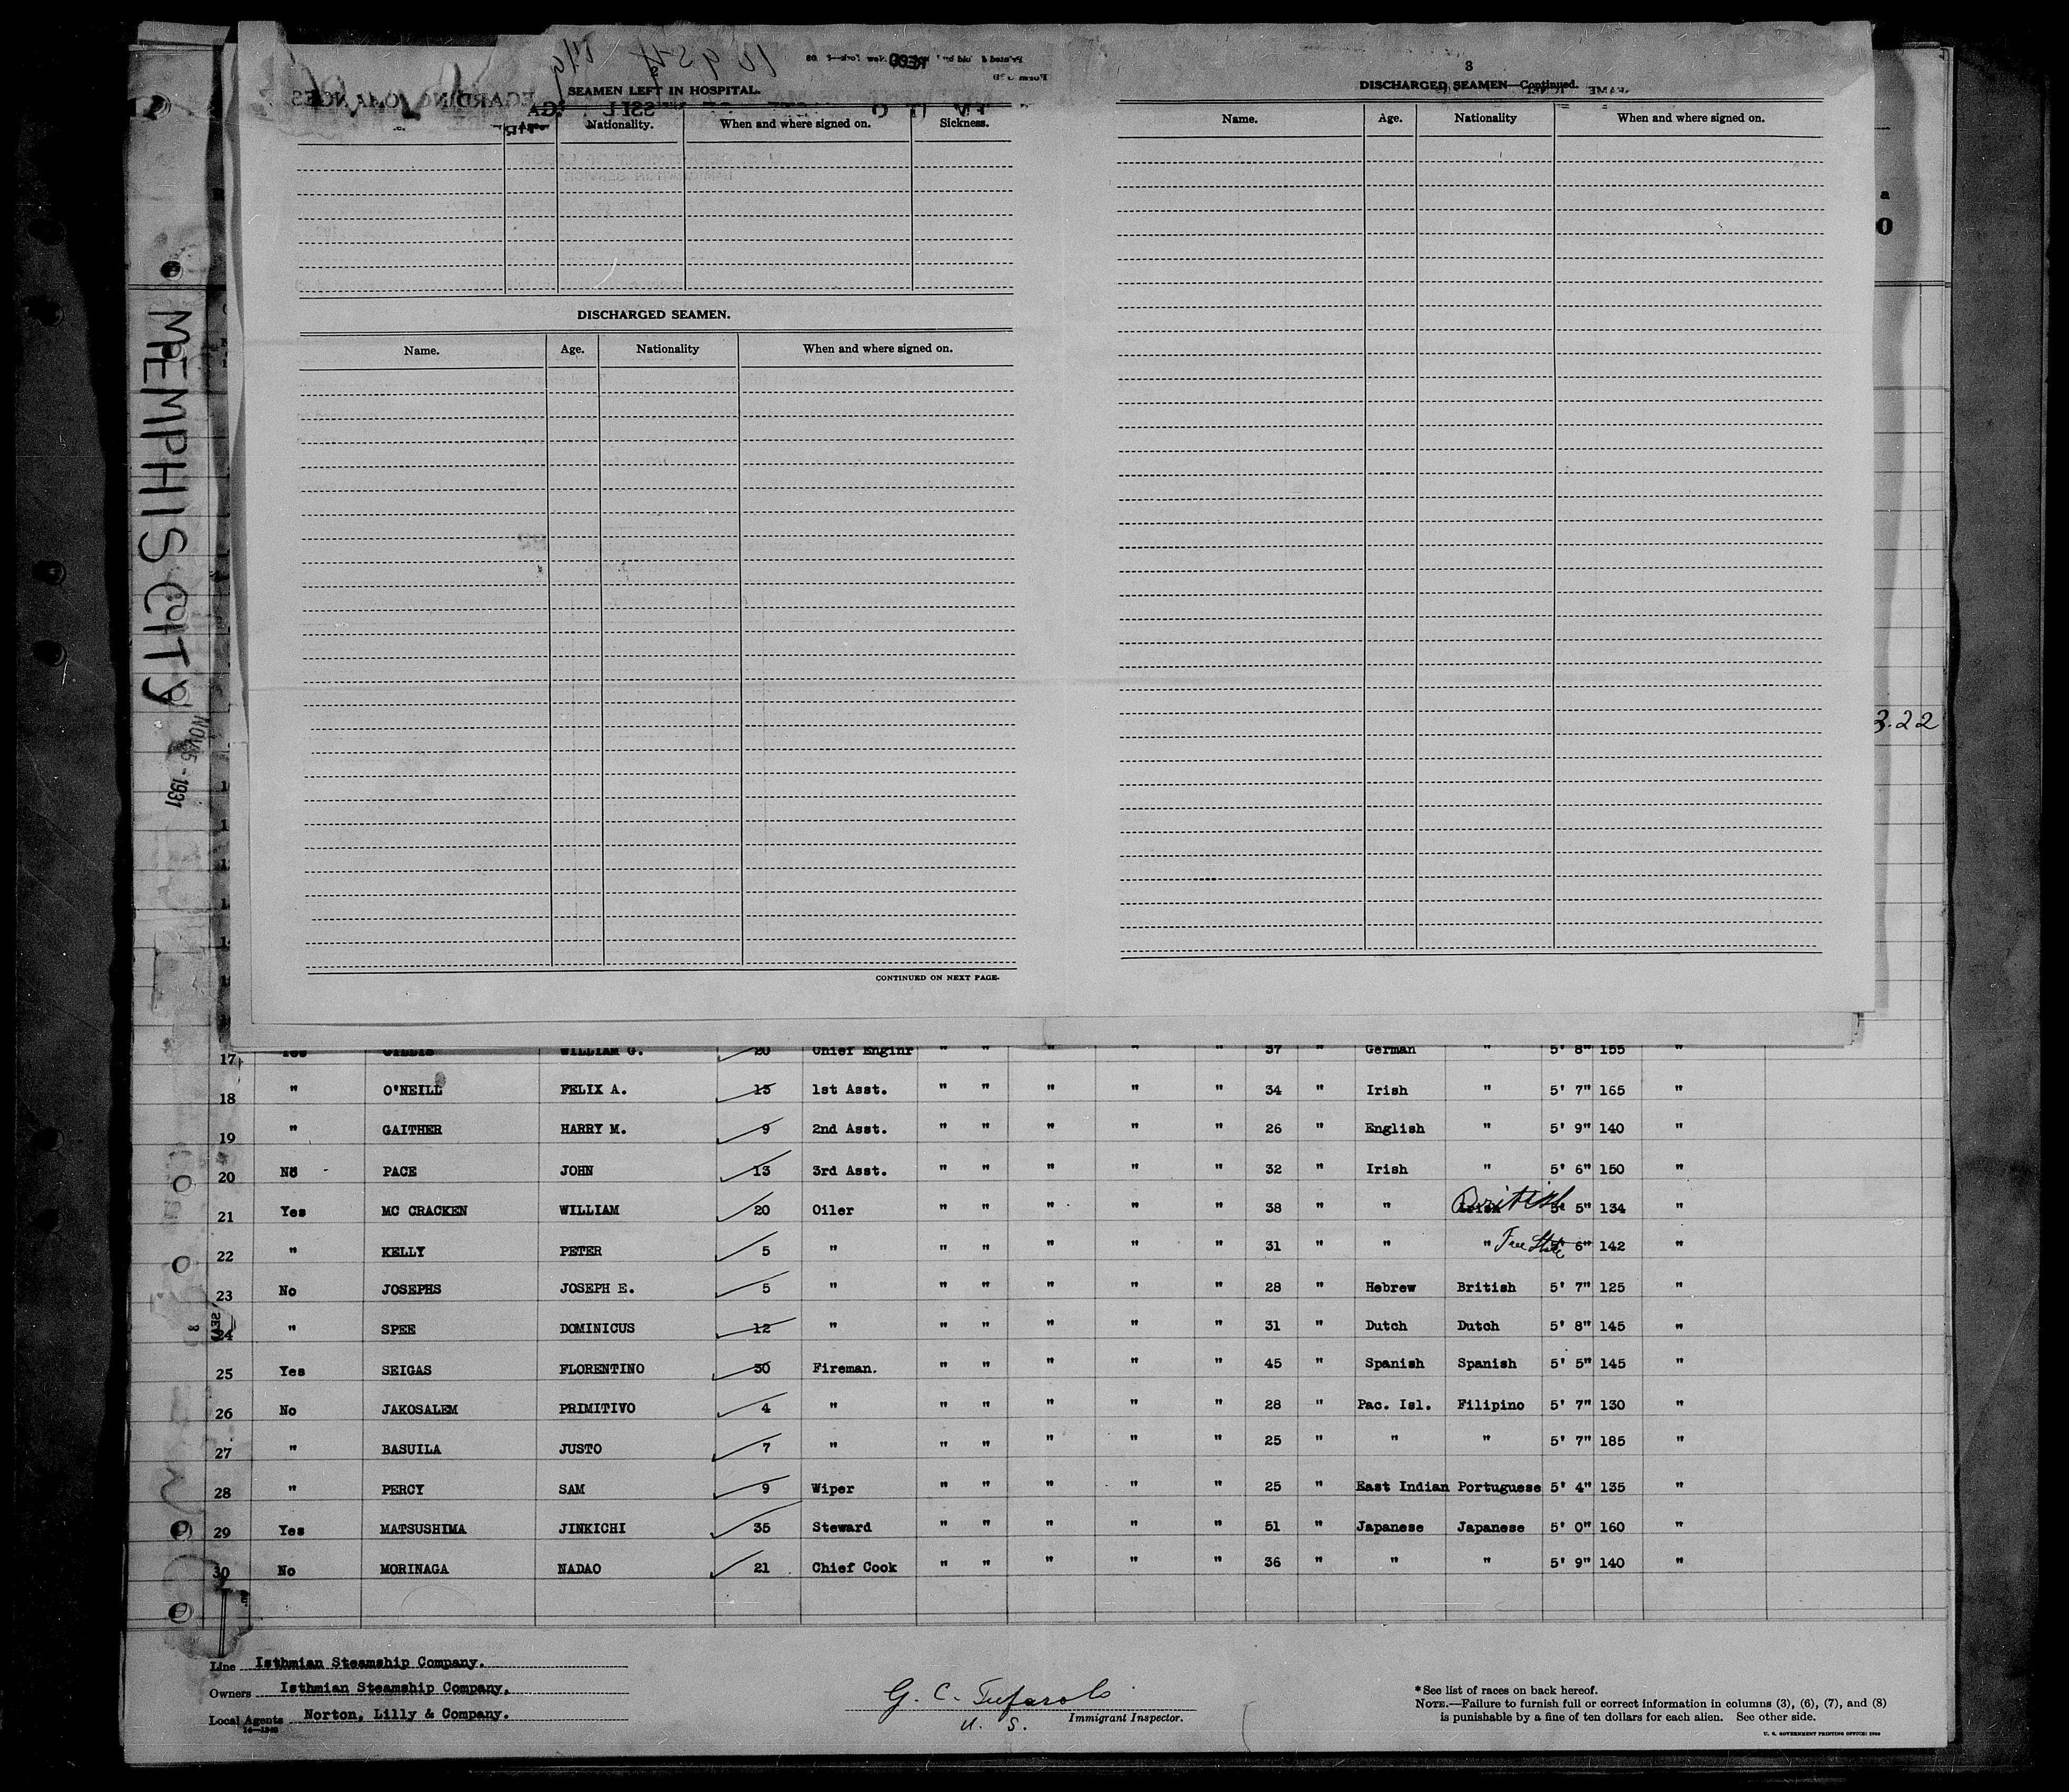 MEMPHIS CITY
NOV 5 - 1931
3.22
SEAMEN LEFT IN HOSPITAL.
Age. Nationality. When and where signed on. Sickness.
DISCHARGED SEAMEN.
Name. Age. Nationality When and where signed on.
CONTINUED ON NEXT PAGE.
3
DISCHARGED SEAMEN—Continued.
Name. Age. Nationality When and where signed on.
17 Yes WILLIAM G. 20 Chief Enginr " " " " " 37 " German " 5' 8" 155 "
18 " O'NEILL FELIX A. 13 1st Asst. " " " " " 34 " Irish " 5' 7" 165 "
19 " GAITHER HARRY M. 9 2nd Asst. " " " " " 26 " English " 5' 9" 140 "
20 No PACE JOHN 13 3rd Asst. " " " " " 32 " Irish " 5' 6" 150 "
21 Yes MC CRACKEN WILLIAM 20 Oiler " " " " " 38 " " British 5' 5" 134 "
22 " KELLY PETER 5 " " " " " " 31 " " " Free State 5' 6" 142 "
23 No JOSEPHS JOSEPH E. 5 " " " " " " 28 " Hebrew British 5' 7" 125 "
24 " SPEE DOMINICUS 12 " " " " " " 31 " Dutch Dutch 5' 8" 145 "
25 Yes SEIGAS FLORENTINO 30 Fireman. " " " " " 45 " Spanish Spanish 5' 5" 145 "
26 No JAKOSALEM PRIMITIVO 4 " " " " " " 28 " Pac. Isl. Filipino 5' 7" 130 "
27 " BASUILA JUSTO 7 " " " " " " 25 " " " 5' 7" 185 "
28 " PERCY SAM 9 Wiper " " " " " 25 " East Indian Portuguese 5' 4" 135 "
29 Yes MATSUSHIMA JINKICHI 35 Steward " " " " " 51 " Japanese Japanese 5' 0" 160 "
30 No MORINAGA NADAO 21 Chief Cook " " " " " 36 " " " 5' 9" 140 "
Line Isthmian Steamship Company.
Owners Isthmian Steamship Company.
Local Agents Norton, Lilly & Company.
G. C.
U. S. Immigrant Inspector.
*See list of races on back hereof.
NOTE.—Failure to furnish full or correct information in columns (3), (6), (7), and (8)
is punishable by a fine of ten dollars for each alien. See other side.
U. S. GOVERNMENT PRINTING OFFICE: